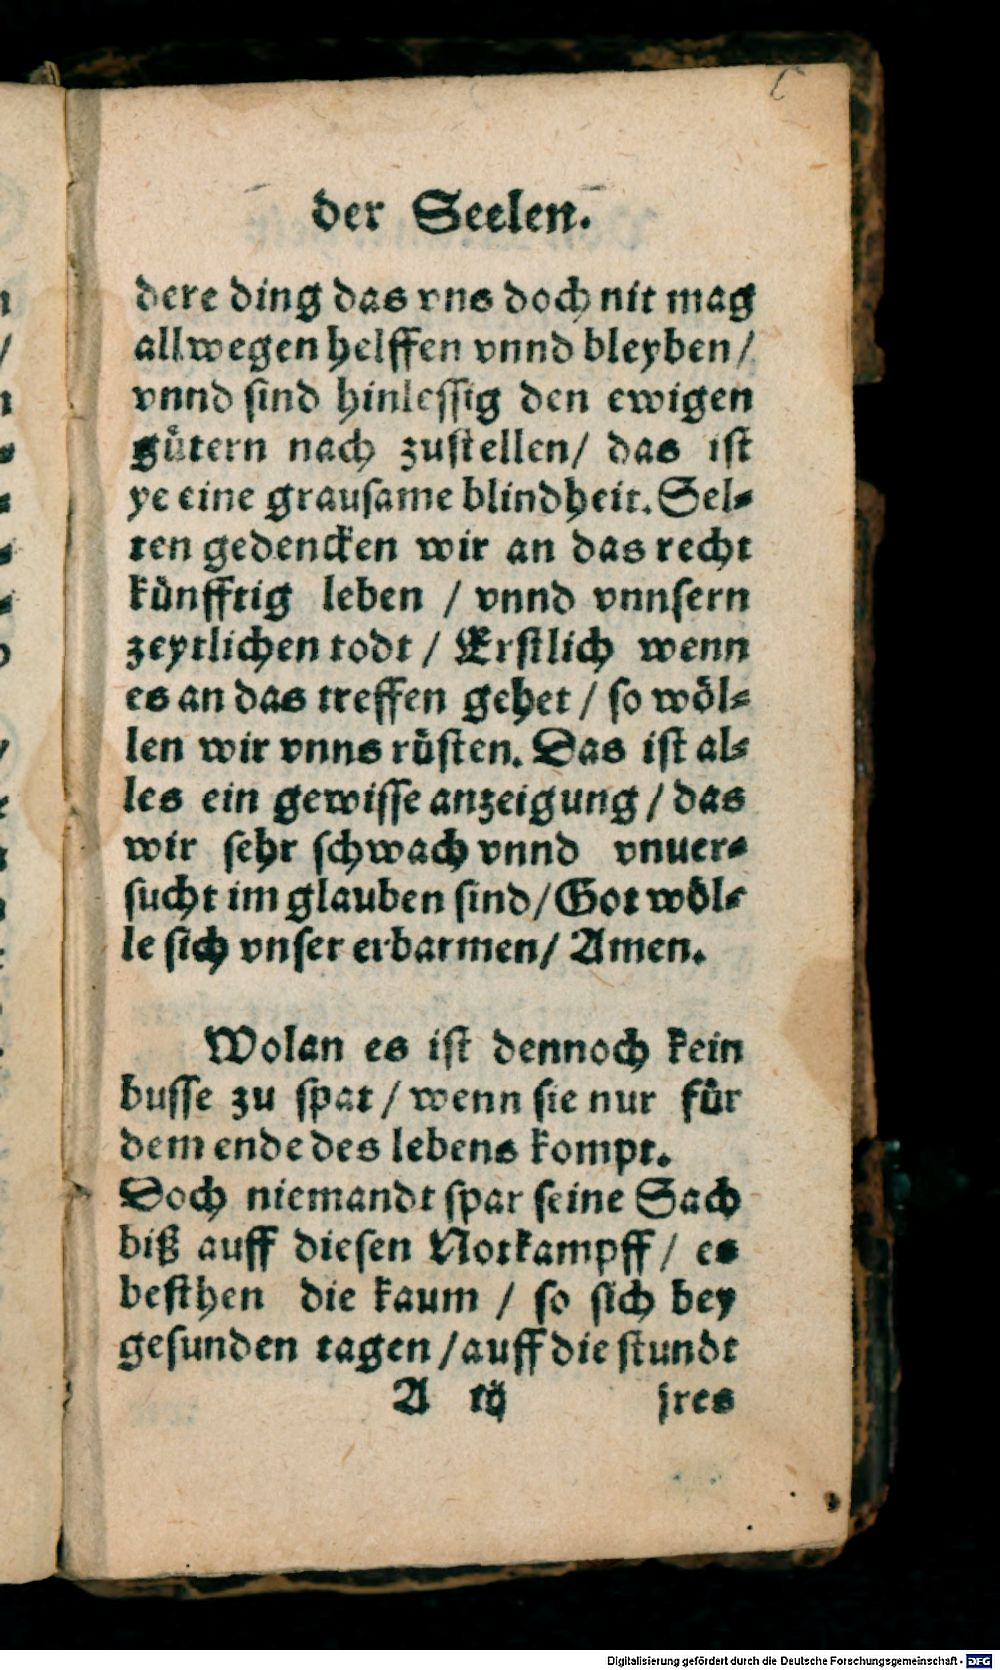 der Seelen.
dere ding das vns doch nit mag
allwegen helffen vnnd bleyben /
vnnd sind hinlessig den ewigen
gütern nach zustellen / das ist
ye eine grausame blindheit. Sel⸗
ten gedencken wir an das recht
künfftig leben / vnnd vnnsern
zeytlichen todt / Erstlich wenn
es an das treffen gehet / so wöl⸗
len wir vnns rüsten. Das ist al⸗
les ein gewisse anzeigung / das
wir sehr schwach vnnd vnuer⸗
sucht im glauben sind / Got wöl⸗
le sich vnser erbarmen / Amen.
Wolan es ist dennoch kein
busse zu spat / wenn sie nur für
dem ende des lebens kompt.
Doch niemandt spar seine Sach
biß auff diesen Notkampff / es
besthen die kaum / so sich bey
gesunden tagen / auff die stundt
A iij jres
Digitalisierung gefördert durch die Deutsche Forschungsgemeinschaft - DFG